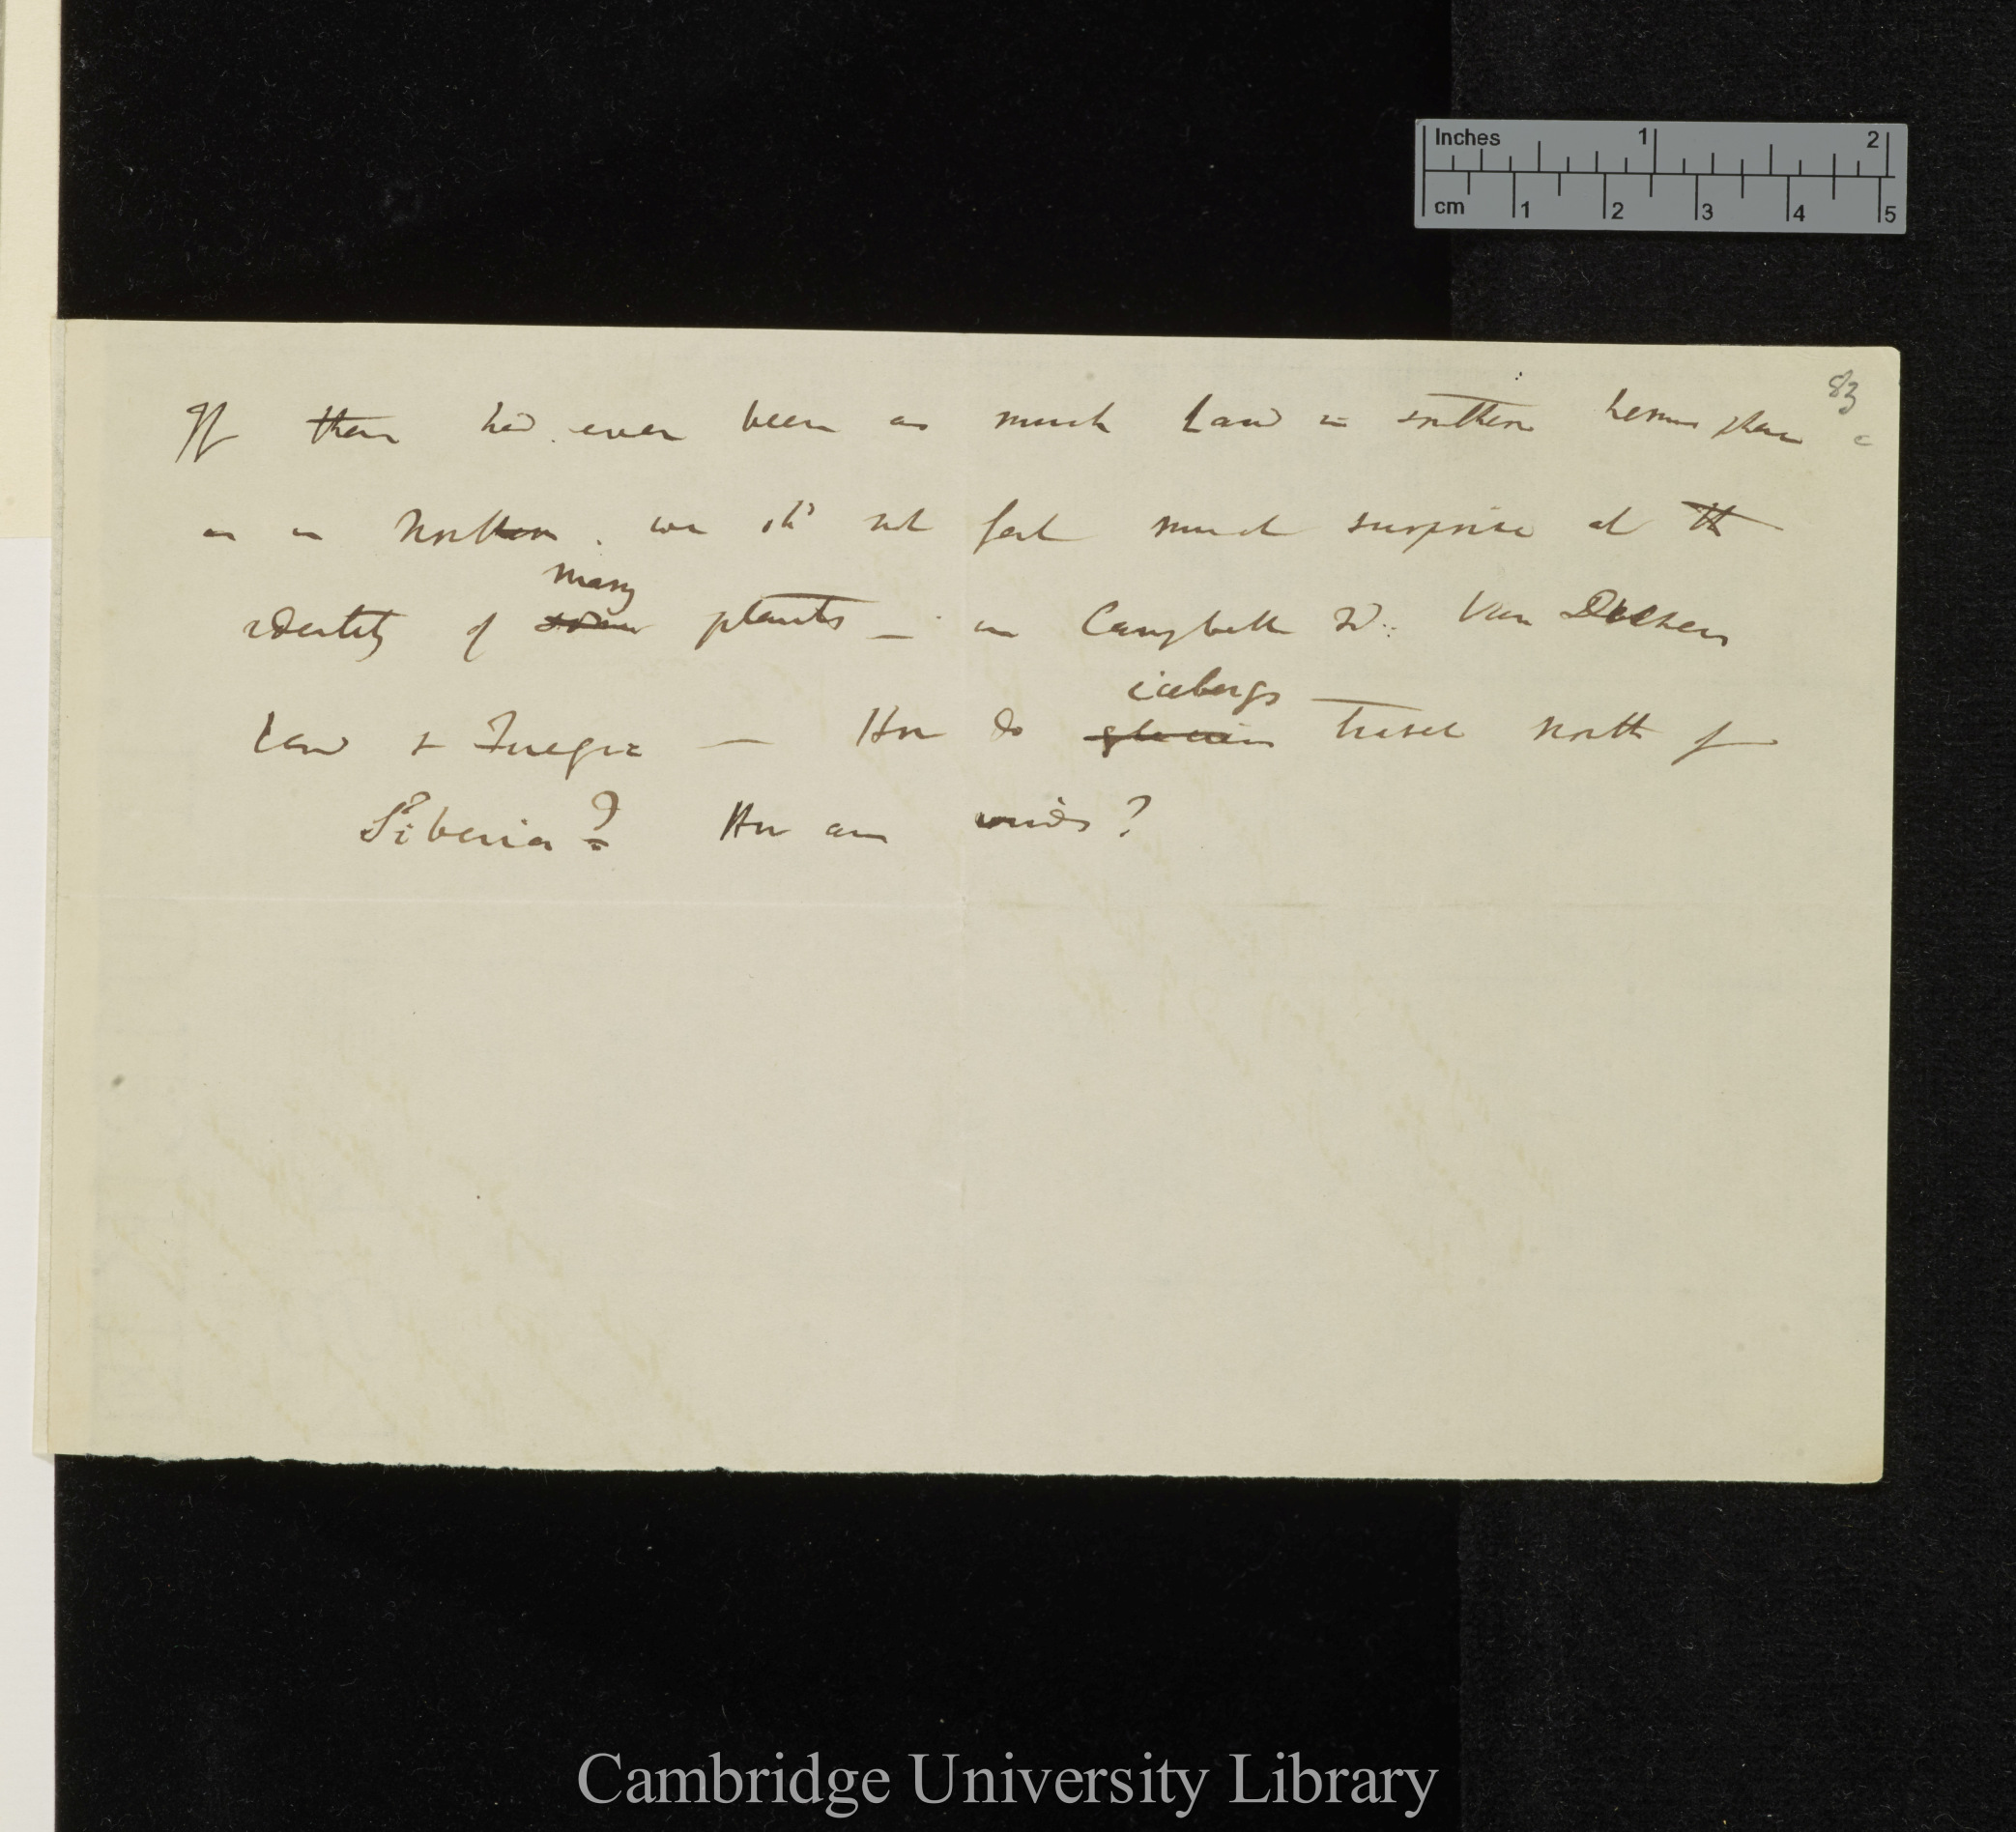 Inches 1 2
cm 1 2 3 4 5
83
If there had ever been as much Land in southern hemisphere
as in Northern. we shd not feel much surprise at the
many
identity of some plants — in Campbell Isd. Van Diemens
icebergs
Land & Fuegia — How do glaciers travel north of
Siberia? How are winds?
Cambridge University Library